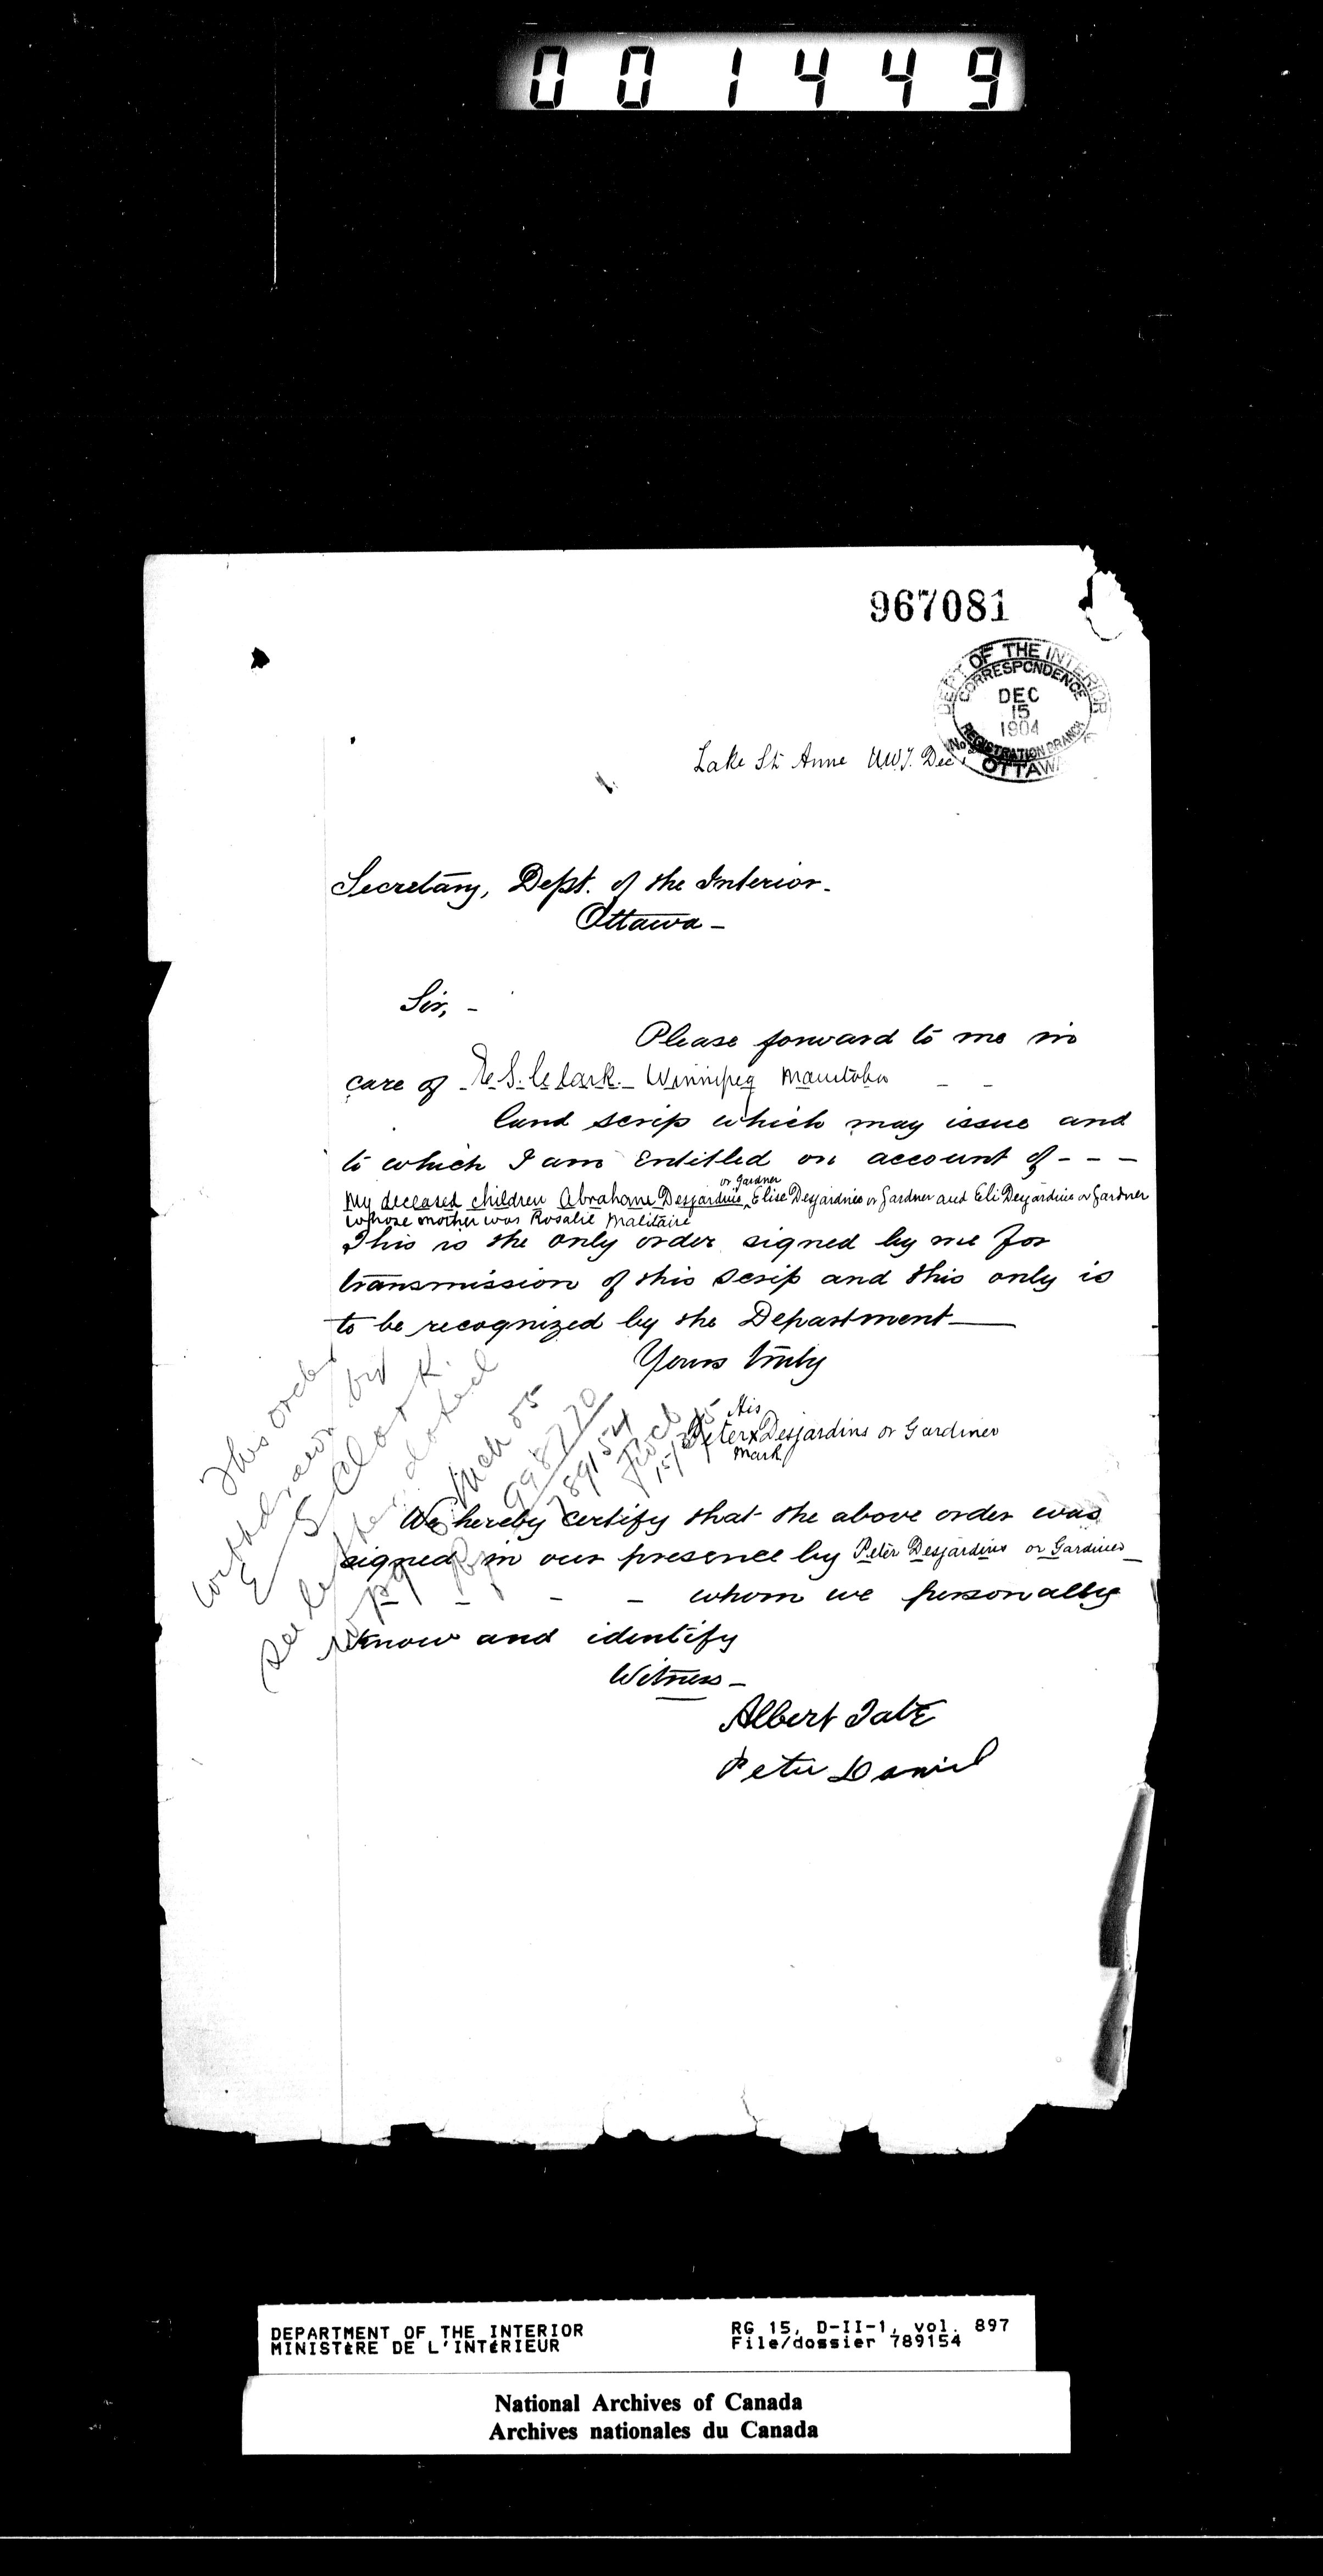 001449
967081
DEPT OF THE INTERIOR
CORRESPONDENCE
DEC
15
1904
REGISTRATION BRANCH
OTTAWA
Lake St. Anne N.W.T. Dec
Secretary, Dept. of the Interior.
Ottawa -
Sir, -
Please forward to me in
care of E. S. Clark - Winnipeg Manitoba - -
land scrip which may issue and
to which I am entitled on account of - - -
or Gardner
My deceased children Abraham Desjardins, Elise Desjardins or Gardner and Eli Desjardins or Gardner
whose mother was Rosalie Malitaire
This is the only order signed by me for
transmission of this scrip and this only is
to be recognized by the Department
Yours truly
His
Peter x Desjardins or Gardiner
mark
This order
withdrawn by
E S Clark
see letter dated
Wpg Mch 05
998770
789154
15/3/05
We hereby certify that the above order was
signed in our presence by Peter Desjardins or Gardiner
- - - whom we personally
know and identify
Witness -
Albert Tate
Peter Daniel
DEPARTMENT OF THE INTERIOR
MINISTÈRE DE L'INTÉRIEUR
RG 15, D-II-1, vol. 897
File/dossier 789154
National Archives of Canada
Archives nationales du Canada